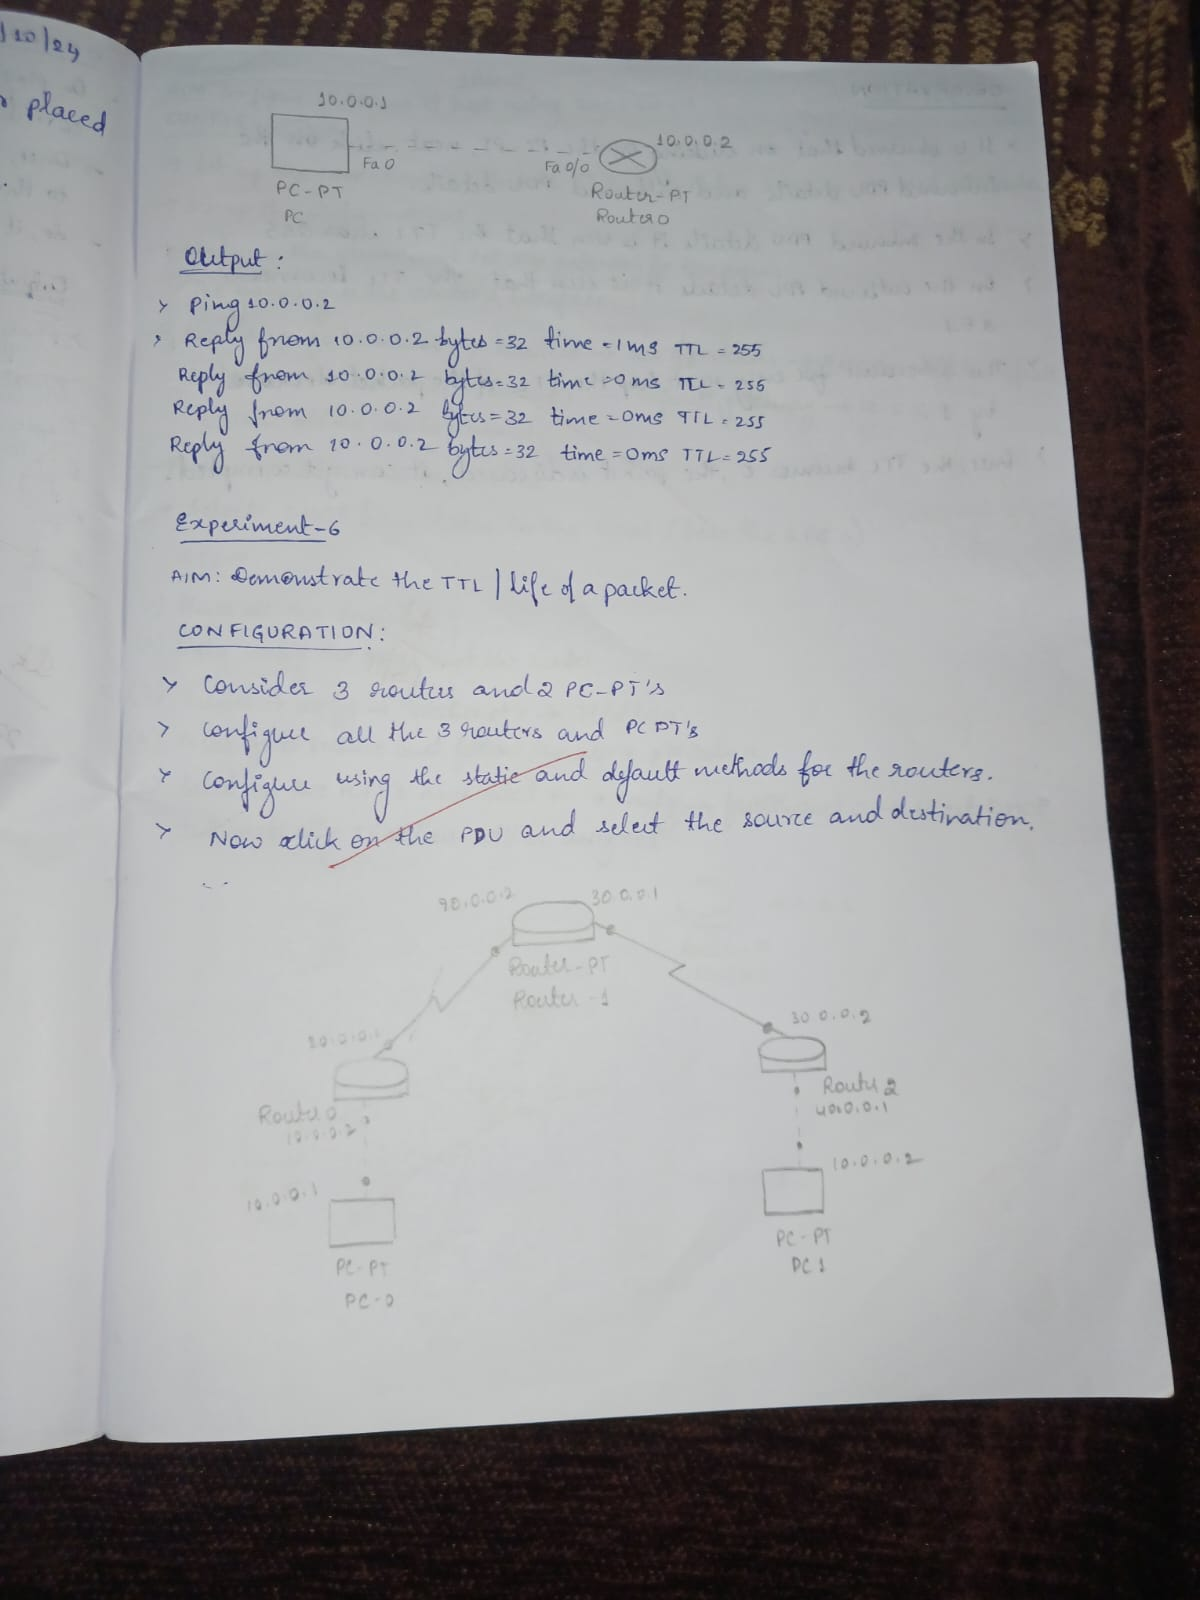 /10/24
placed
10.0.0.1
10.0.0.2
Fa0
Fa0/0
PC-PT
PC
Router-PT
Router0
Output :
> Ping 10.0.0.2
> Reply from 10.0.0.2 bytes =32 time =1ms TTL = 255
Reply from 10.0.0.2 bytes=32 time =0ms TTL - 255
Reply from 10.0.0.2 bytes=32 time =0ms TTL = 255
Reply from 10.0.0.2 bytes=32 time =0ms TTL = 255
Experiment-6
AIM: Demonstrate the TTL / life of a packet.
CONFIGURATION:
> Consider 3 routers and 2 PC-PT's
> Configure all the 3 routers and PC PT's
> Configure using the static and default methods for the routers.
> Now click on the PDU and select the source and destination.
30.0.0.1
Router-PT
Router-1
30.0.0.2
Router 0
Router 2
10.0.0.2
40.0.0.1
10.0.0.1
10.0.0.2
PC-PT
PC-0
PC-PT
PC 1